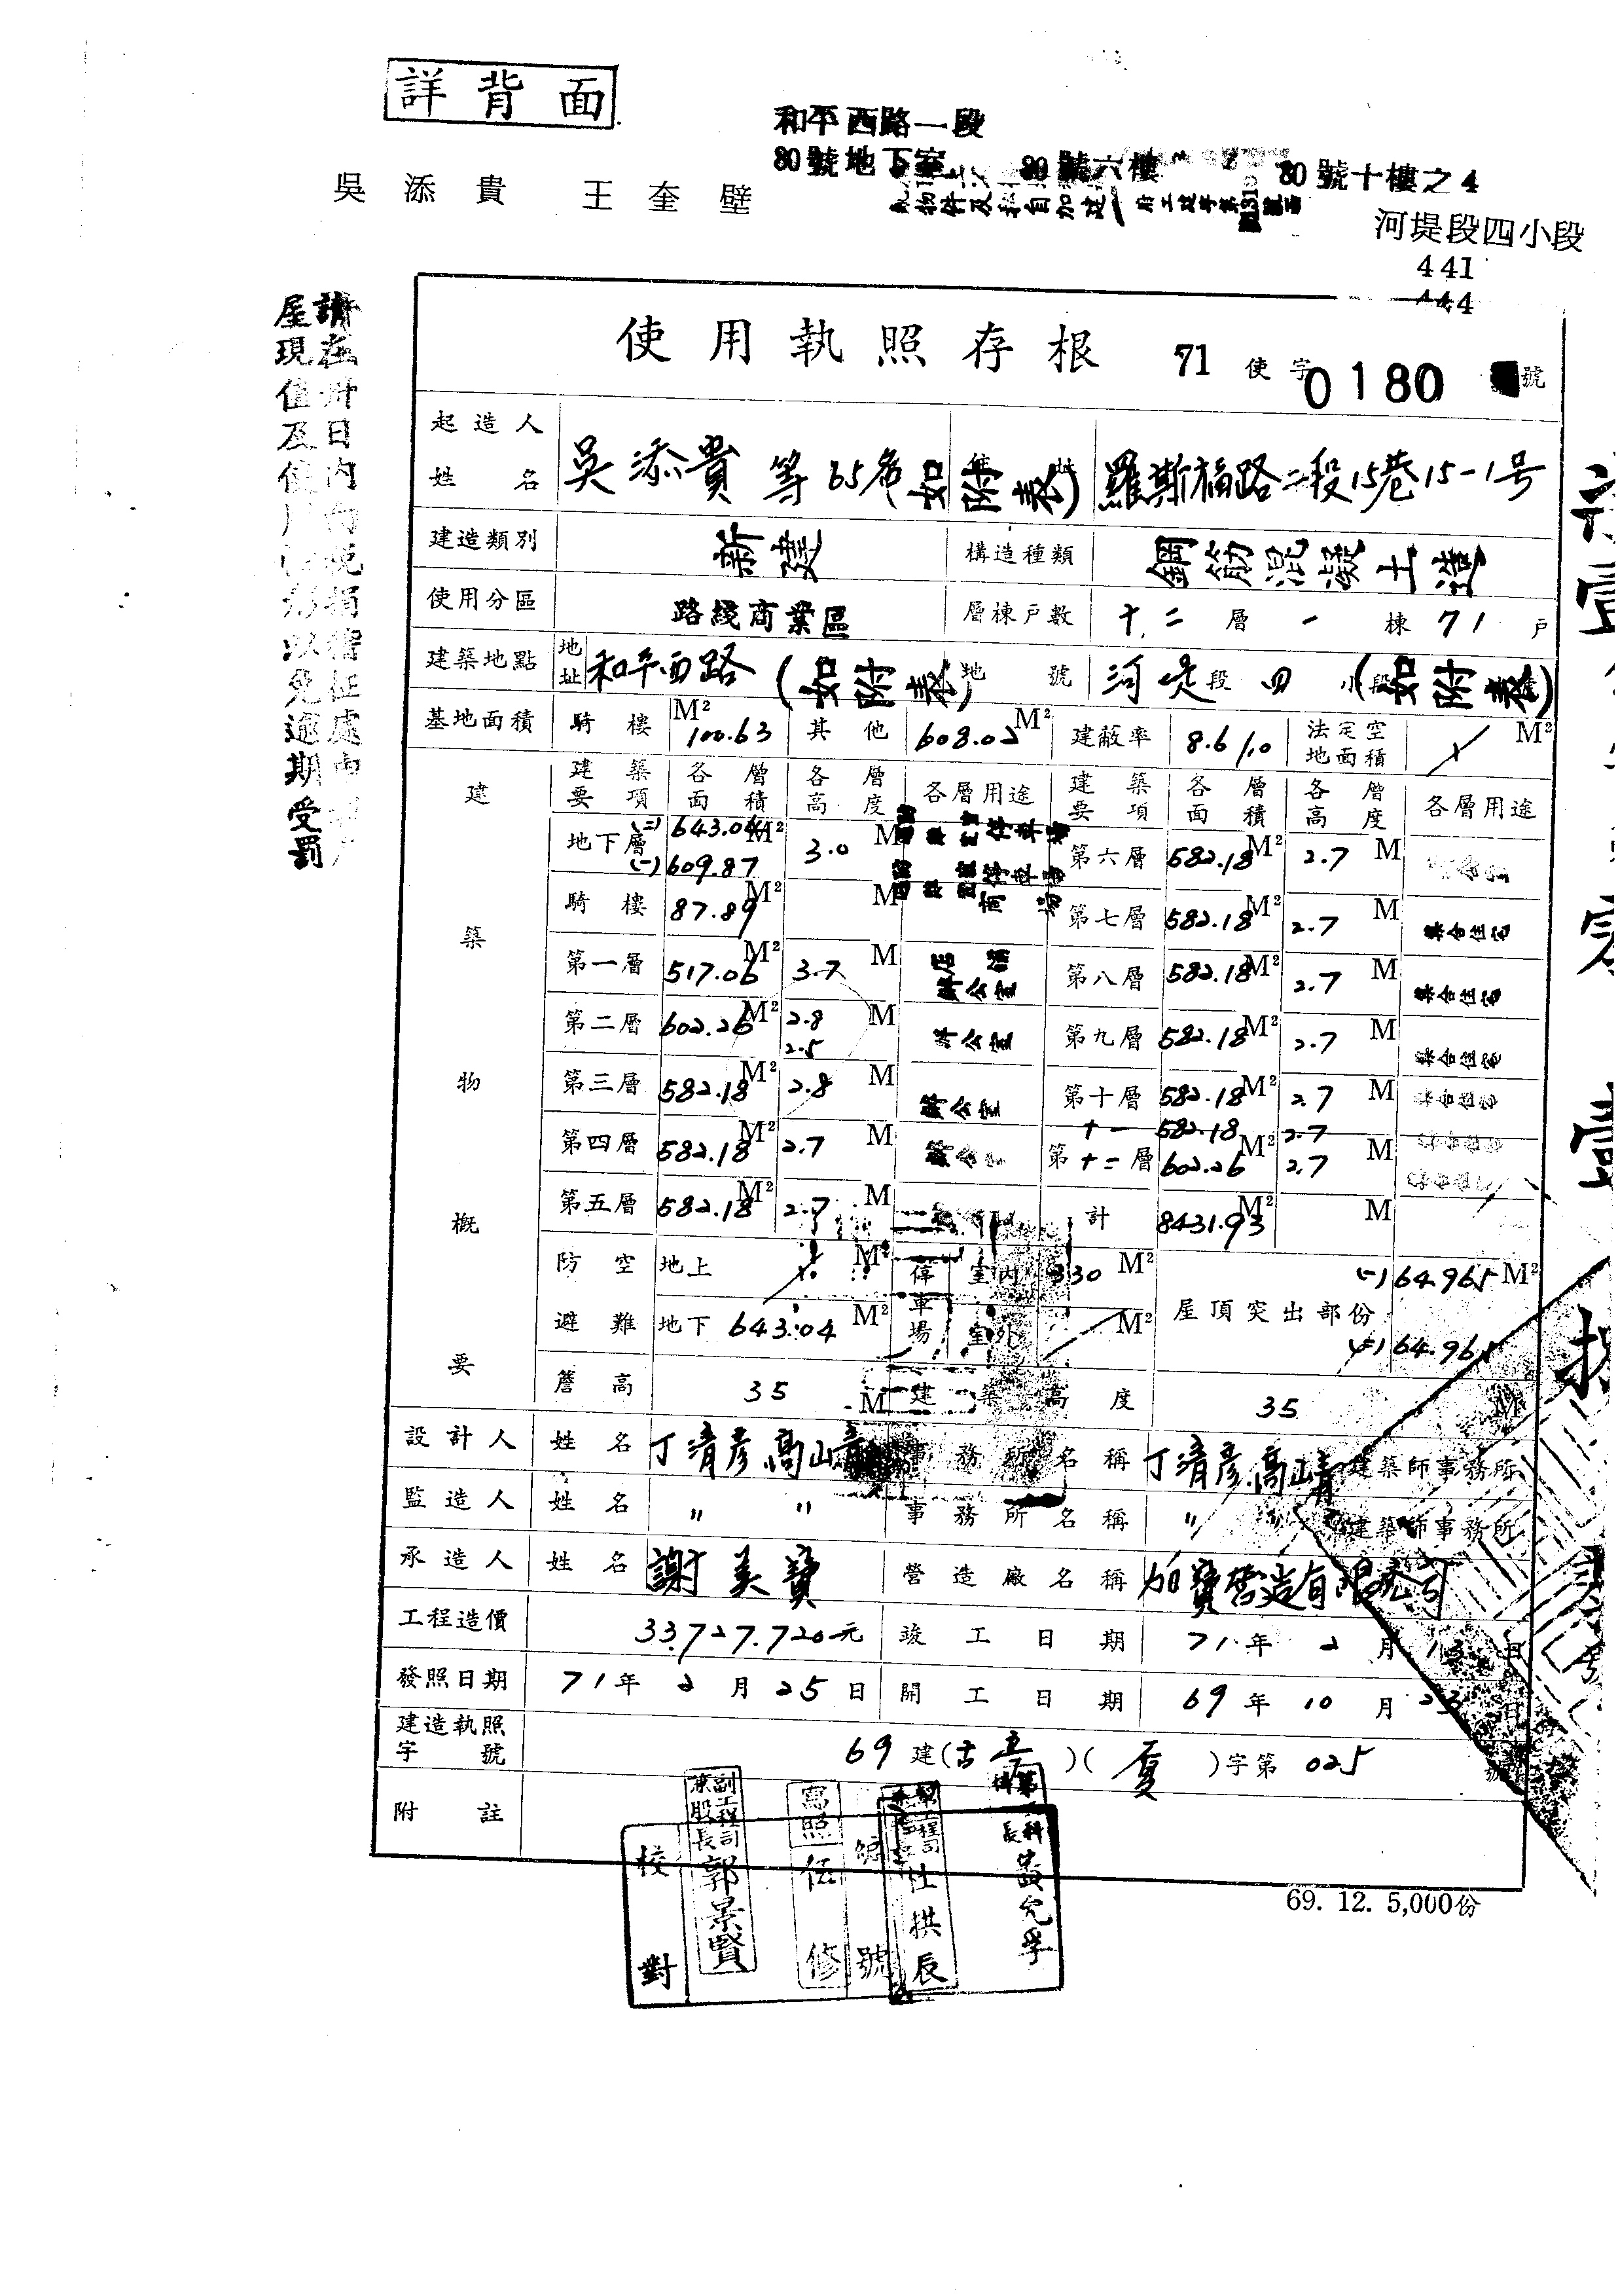 詳背面
和平西路一段
80號地下室 80號六樓 80號十樓之4
吳添貴 王奎壁
河堤段四小段
441
444
請在卅日內向稅捐稽征處申
屋現值及使用情形以免逾期受罰
使用執照存根 71 使字 0180 號
起造人姓名 吳添貴 等65名(如附表) 住址 羅斯福路二段15巷15-1号
建造類別 新建 構造種類 鋼筋混凝土造
使用分區 路綫商業區 層棟戶數 十二層一棟71戶
建築地點 地址 和平西路(如附表) 地號 河堤段四小段(如附表)
基地面積 騎樓 100.63 M² 其他 608.02 M² 建蔽率 8.6/10 法定空地面積 / M²
建築物概要
建築要項 各層面積 各層高度 各層用途 建築要項 各層面積 各層高度 各層用途
地下層 (二)643.04 M² (一)609.87 3.0 M 第六層 582.18 M² 2.7 M
騎樓 87.89 M² M 第七層 582.18 M² 2.7 M 集合住宅
第一層 517.06 M² 3.7 M 店舖 辦公室 第八層 582.18 M² 2.7 M 集合住宅
第二層 602.26 M² 2.8 2.5 M 辦公室 第九層 582.18 M² 2.7 M 集合住宅
第三層 582.18 M² 2.8 M 辦公室 第十層 582.18 M² 2.7 M 集合住宅
十一 582.18 2.7
第四層 582.18 M² 2.7 M 第十二層 602.26 M² 2.7 M
第五層 582.18 M² 2.7 M 計 8431.93 M² M
防空避難 地上 / M² 停車場 室內 330 M² 屋頂突出部份 (一)64.965 M²
地下 643.04 M² 室外 / M² (二)64.965
簷高 35 M 建築高度 35 M
設計人 姓名 丁清彥.高山青 事務所名稱 丁清彥.高山青 建築師事務所
監造人 姓名 〃 〃 事務所名稱 〃 建築師事務所
承造人 姓名 謝美寶 營造廠名稱 加寶營造有限公司
工程造價 33,727,720元 竣工日期 71年2月13日
發照日期 71年2月25日 開工日期 69年10月23日
建造執照字號 69建(古亭)(廈)字第025號
附註
校對
副工程司兼股長郭景賢
寫照 伍修
編號
杜拱辰
科長
69. 12. 5,000份